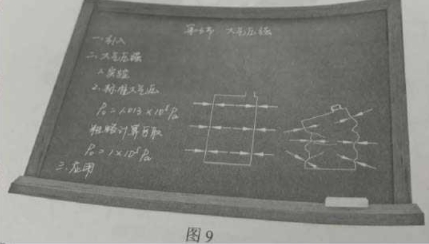 第3节 大气压强
一.引入
二.大气压强
1.实验
2.标准大气压
P₀=1.013×10⁵Pa
粗略计算可取
P₀=1×10⁵Pa
三.应用
图9